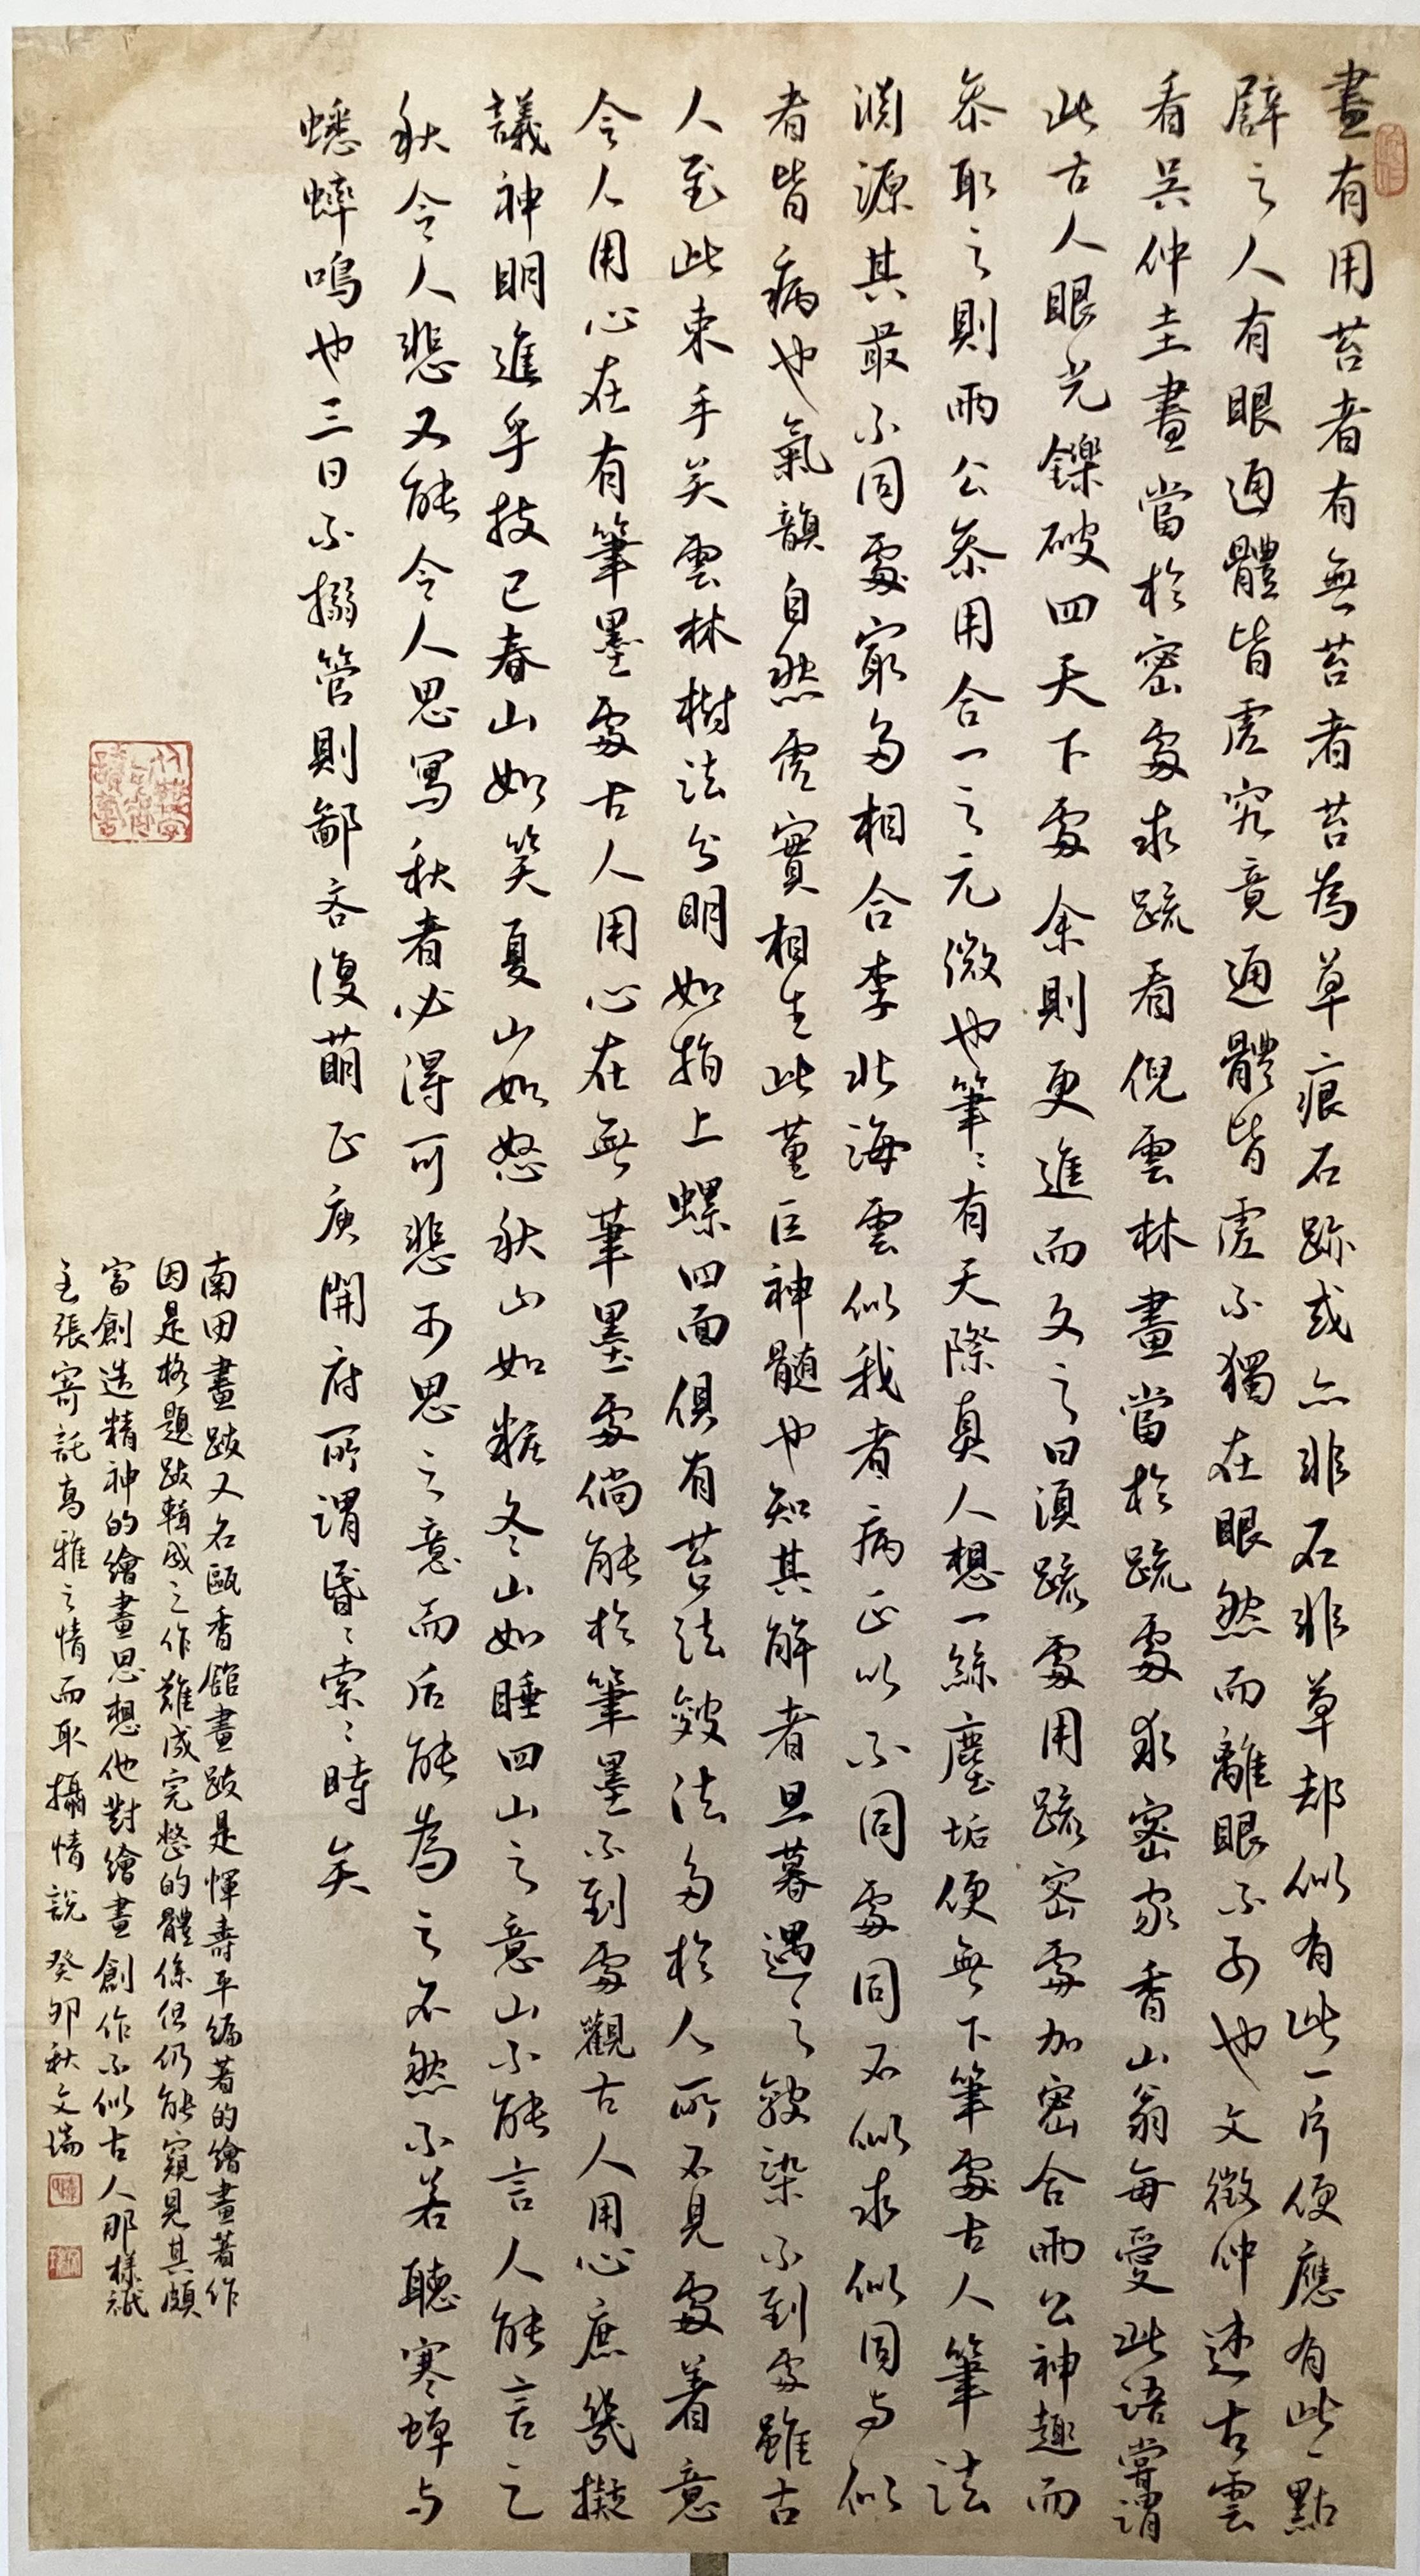 畫有用苔者有無苔者苔為草痕石跡或亦非石非草却似有此一片便應有此一點
譬之人有眼通體皆虛究竟通體皆虛不獨在眼然而離眼不可也文徵仲述古雲
看吳仲圭畫當於密處求疏看倪雲林畫當於疏處求密家香山翁每愛此語嘗謂
此古人眼光鑠破四天下處余則更進而文之曰須疏處用疏密處加密合兩公神趣而
叅取之則兩公叅用合一之元微也筆〻有天際真人想一絲塵垢便無下筆處古人筆法
淵源其最不同處最多相合李北海雲似我者病正以不同處同不似求似同與似
者皆病也氣韻自然虛實相生此董巨神髓也知其解者旦暮遇之皴染不到處雖古
人至此束手矣雲林樹法分明如指上螺四面俱有苔法皴法多於人所不見處着意
今人用心在有筆墨處古人用心在無筆墨處倘能於筆墨不到處觀古人用心庶幾擬
議神明進乎技已春山如笑夏山如怒秋山如粧冬山如睡四山之意山不能言人能言之
秋令人悲又能令人思寫秋者必得可悲可思之意而后能為之不然不若聽寒蟬与
蟋蟀鳴也三日不搦管則鄙吝復萌正庾開府所謂昏〻索〻時矣
南田畫跋又名甌香館畫跋是惲壽平編著的繪畫著作
因是格題跋輯成之作雖成完整的體係但仍能窺見其頗
富創造精神的繪畫思想他對繪畫創作不似古人那樣祇
主張寄託高雅之情而取攝情說 癸卯秋文瑞